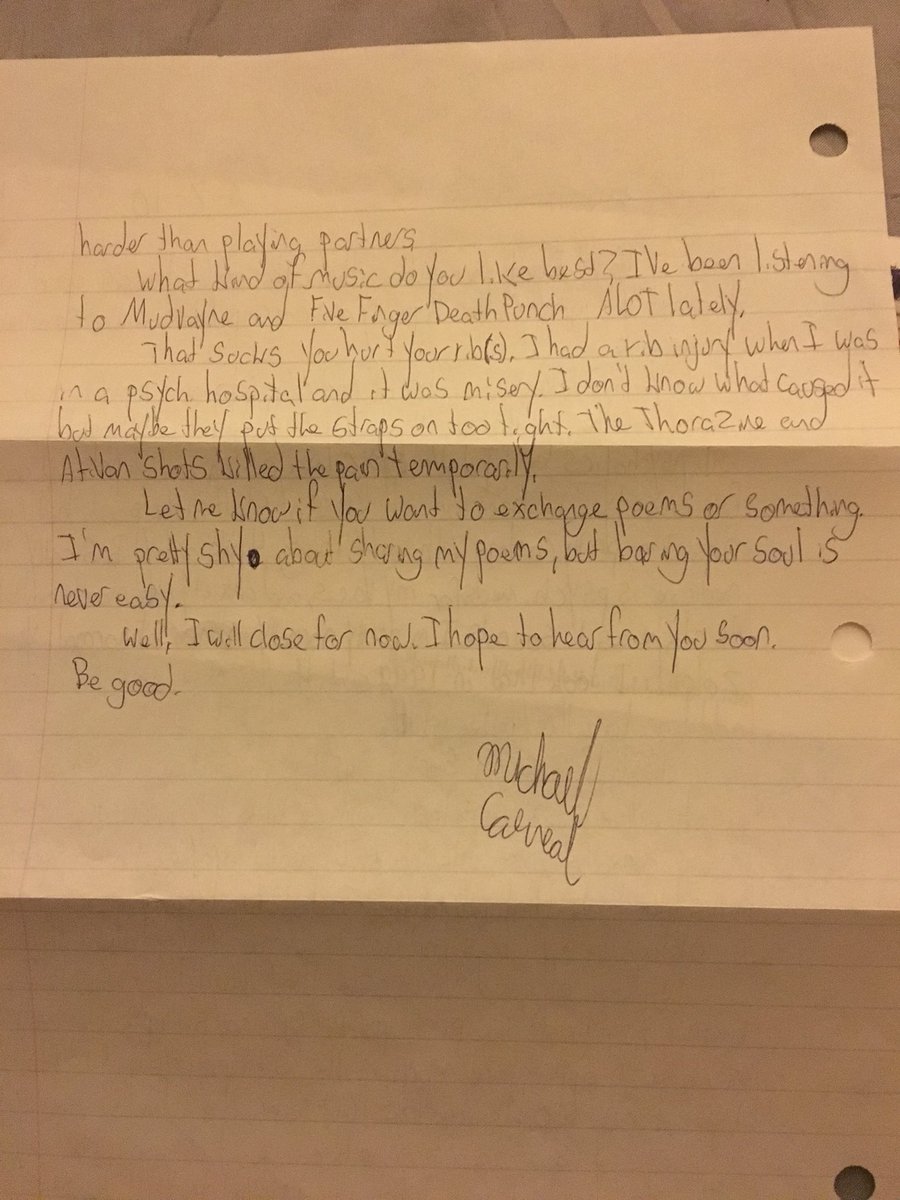 harder than playing partners.
What kind of music do you like best? I've been listening
to Mudvayne and Five Finger Death Punch ALOT lately.
That sucks you hurt your rib(s). I had a rib injury when I was
in a psych hospital and it was misery. I don't know what caused it
but maybe they put the straps on too tight. The Thorazine and
Ativan shots killed the pain temporarily.
Let me know if you want to exchange poems or something.
I'm pretty shy about sharing my poems, but baring your soul is
never easy.
Well, I will close for now. I hope to hear from you soon.
Be good.
Michael
Carneal